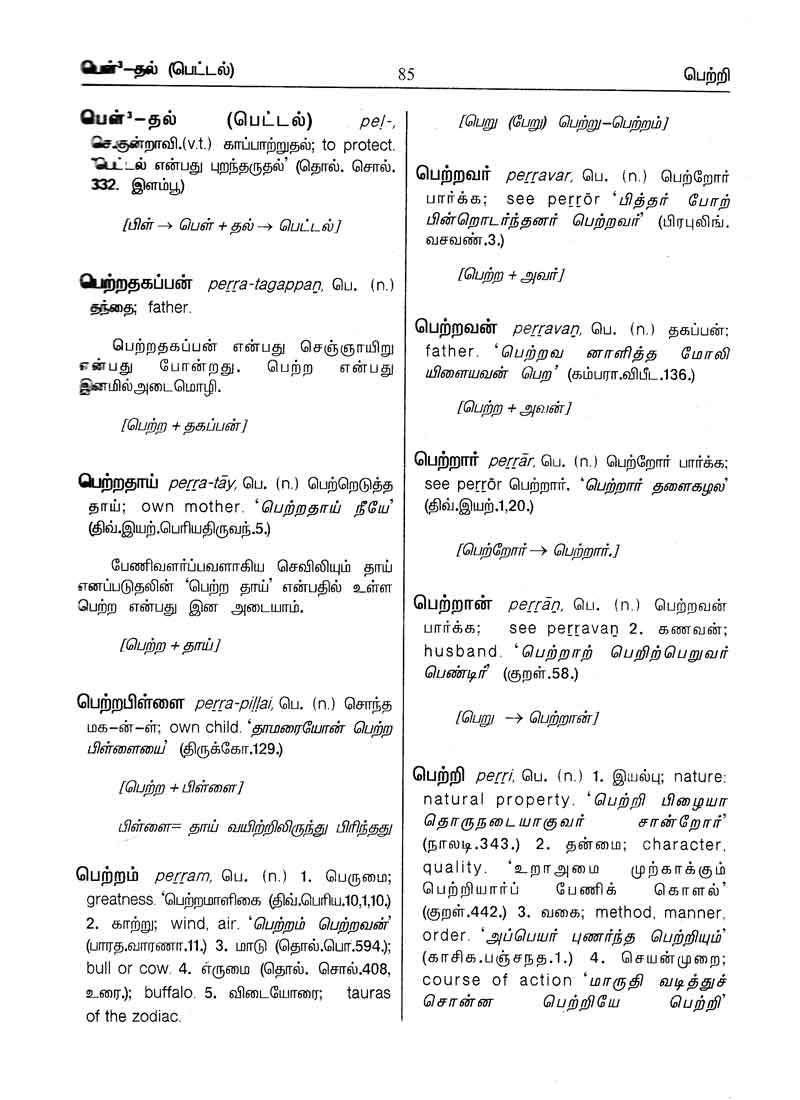 பெள்³–தல் (பெட்டல்)
85
பெற்றி
பெள்³–தல் (பெட்டல்) peḷ-,
செ.குன்றாவி.(v.t.) காப்பாற்றுதல்; to protect.
'பெட்டல் என்பது புறந்தருதல்' (தொல். சொல்.
332. இளம்பூ)
[பிள் → பெள் + தல் → பெட்டல்]
பெற்றதகப்பன் peṟṟa-tagappaṉ, பெ. (n.)
தந்தை; father.
பெற்றதகப்பன் என்பது செஞ்ஞாயிறு
என்பது போன்றது. பெற்ற என்பது
இனமில்அடைமொழி.
[பெற்ற + தகப்பன்]
பெற்றதாய் peṟṟa-tāy, பெ. (n.) பெற்றெடுத்த
தாய்; own mother. 'பெற்றதாய் நீயே'
(திவ்.இயற்.பெரியதிருவந்.5.)
பேணிவளர்ப்பவளாகிய செவிலியும் தாய்
எனப்படுதலின் 'பெற்ற தாய்' என்பதில் உள்ள
பெற்ற என்பது இன அடையாம்.
[பெற்ற + தாய்]
பெற்றபிள்ளை peṟṟa-piḷḷai, பெ. (n.) சொந்த
மக–ன்–ள்; own child. 'தாமரையோன் பெற்ற
பிள்ளையை' (திருக்கோ.129.)
[பெற்ற + பிள்ளை]
பிள்ளை= தாய் வயிற்றிலிருந்து பிரிந்தது
பெற்றம் peṟṟam, பெ. (n.) 1. பெருமை;
greatness. 'பெற்றமாளிகை (திவ்.பெரிய.10,1,10,)
2. காற்று; wind, air. 'பெற்றம் பெற்றவன்'
(பாரத.வாரணா.11.) 3. மாடு (தொல்.பொ.594.);
bull or cow. 4. எருமை (தொல். சொல்.408,
உரை.); buffalo. 5. விடையோரை; tauras
of the zodiac.
[பெறு (பேறு) பெற்று–பெற்றம்]
பெற்றவர் peṟṟavar, பெ. (n.) பெற்றோர்
பார்க்க; see perrōr 'பித்தர் போற்
பின்றொடர்ந்தனர் பெற்றவர்' (பிரபுலிங்.
வசவண்.3.)
[பெற்ற + அவர்]
பெற்றவன் peṟṟavaṉ, பெ. (n.) தகப்பன்;
father. 'பெற்றவ னாளித்த மோலி
யிளையவன் பெற' (கம்பரா.விபீட.136.)
[பெற்ற + அவன்]
பெற்றார் peṟṟār, பெ. (n.) பெற்றோர் பார்க்க;
see perrōr பெற்றார். 'பெற்றார் தளைகழல'
(திவ்.இயற்.1,20.)
[பெற்றோர் → பெற்றார்.]
பெற்றான் peṟṟāṉ, பெ. (n.) பெற்றவன்
பார்க்க; see peṟṟavaṉ 2. கணவன்;
husband. 'பெற்றாற் பெறிற்பெறுவர்
பெண்டிர்' (குறள்.58.)
[பெறு → பெற்றான்]
பெற்றி peṟṟi, பெ. (n.) 1. இயல்பு; nature:
natural property. 'பெற்றி பிழையா
தொருநடையாகுவர் சான்றோர்'
(நாலடி.343.) 2. தன்மை; character,
quality. 'உறாஅமை முற்காக்கும்
பெற்றியார்ப் பேணிக் கொளல்'
(குறள்.442.) 3. வகை; method, manner,
order. 'அப்பெயர் புணர்ந்த பெற்றியும்'
(காசிக.பஞ்சநத.1.) 4. செயன்முறை;
course of action 'மாருதி வடித்துச்
சொன்ன பெற்றியே பெற்றி'